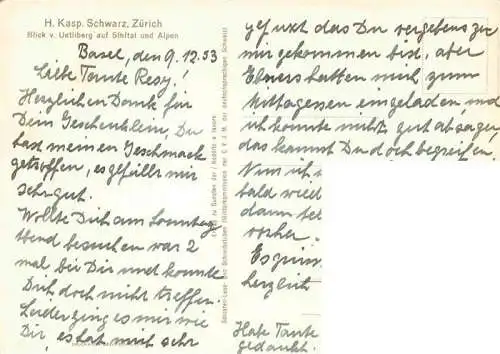 H. Kasp. Schwarz, Zürich
Blick v. Uetliberg auf Sihltal und Alpen
Basel, den 9.12.53
Liebe Tante Resy!
Herzlichen Dank für
Dein Geschenklein, Du
hast meinen Geschmack
getroffen, es gefällt mir
sehr gut.
Wollte Dich am Sonntag
Abend besuchen war 2
mal bei Dir und konnte
Dich doch nicht treffen.
Leider ging es mir wie
Dir, es hat mich sehr
gefuxt das Du vergebens zu
mir gekommen bist, aber
hatten mich zum
Mittagessen eingeladen und
ich konnte nicht gut absagen,
das kannst Du doch begreifen.
Nun ich
bald wied
dann
vorher.
Es grüss
herzlich
Habe Tante
gedankt.